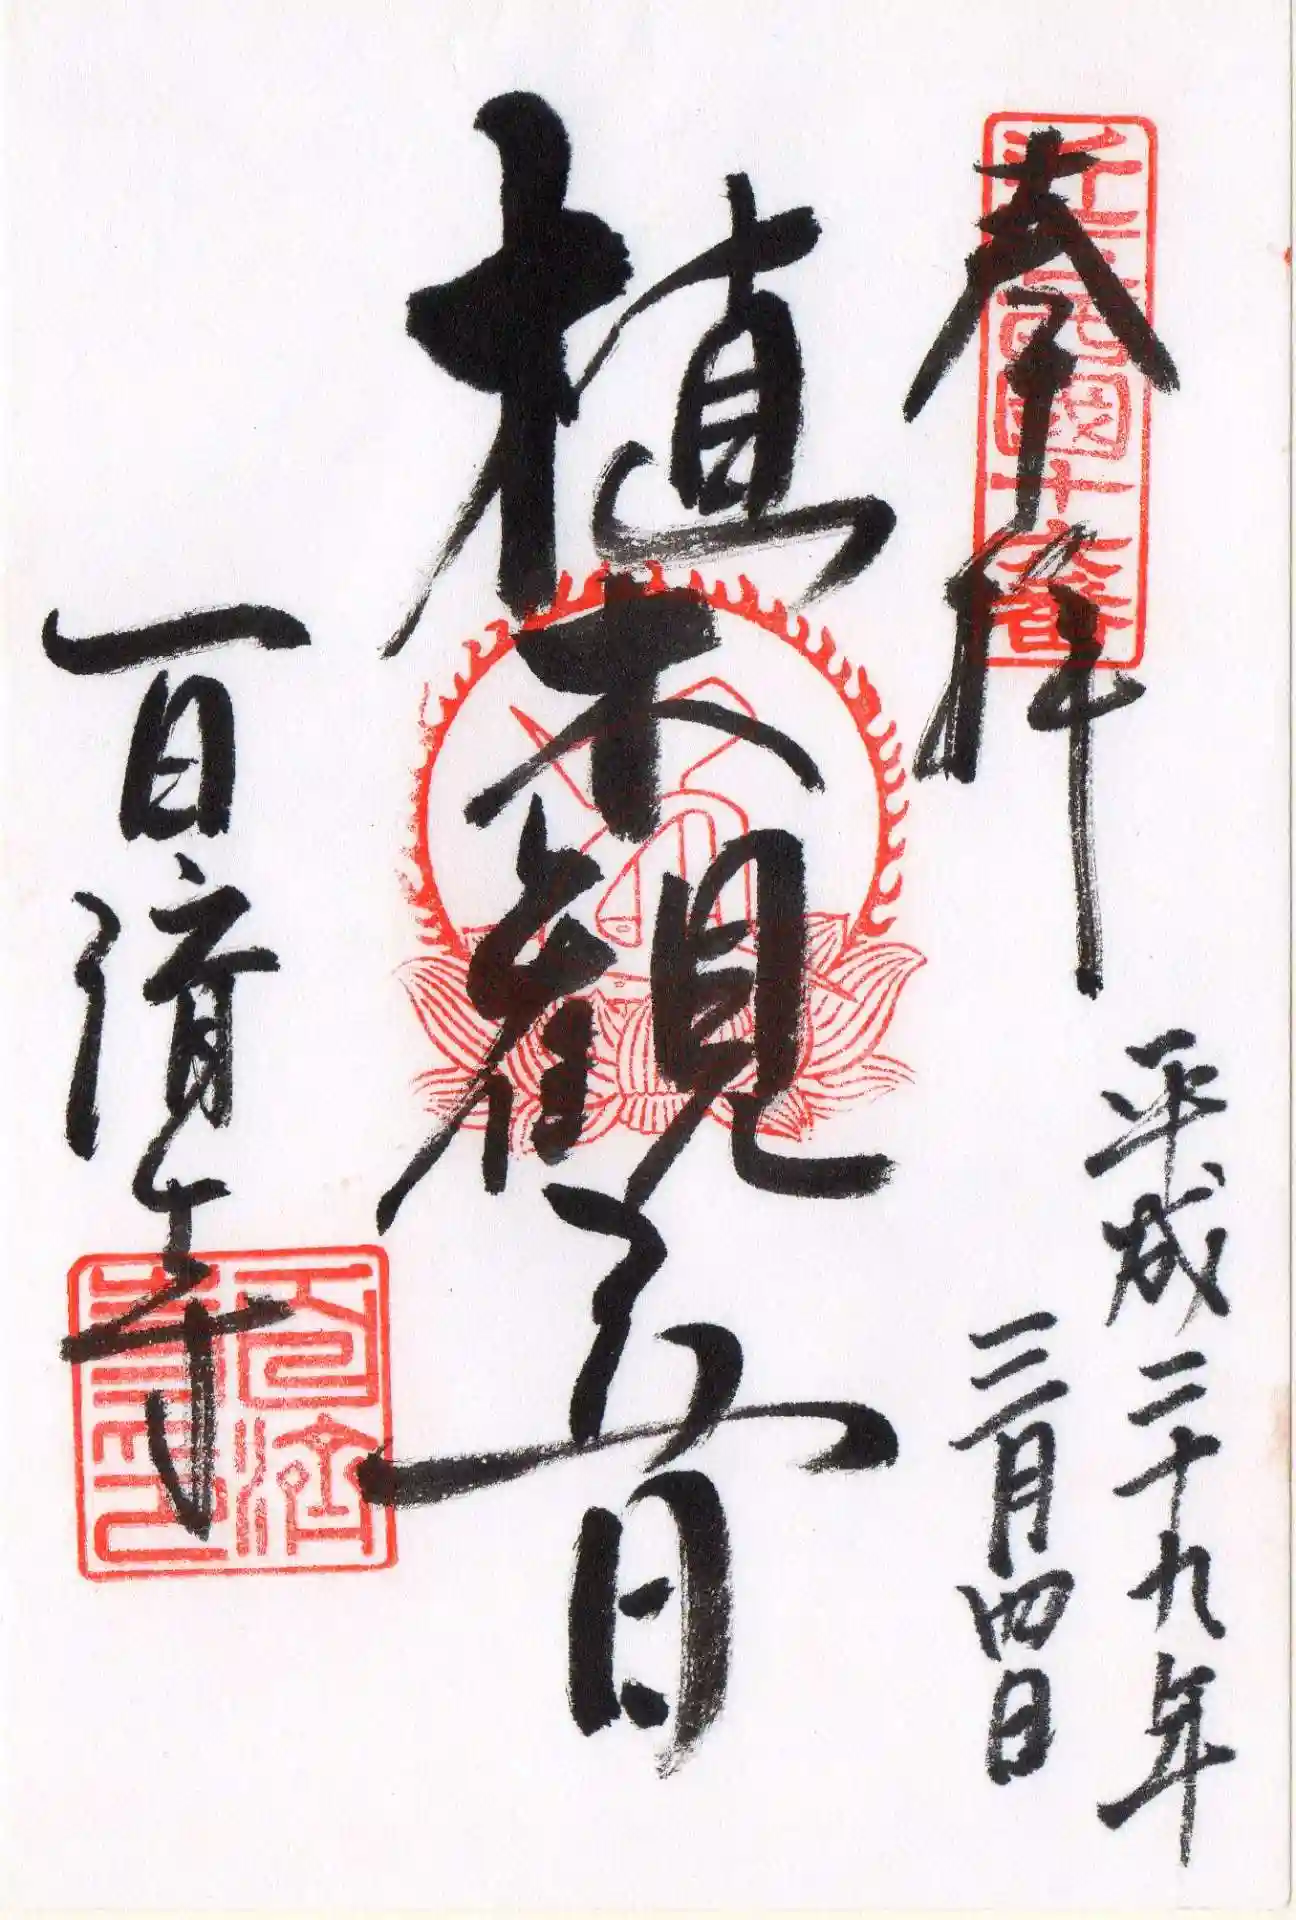 奉拝
近江西國十六番
平成二十九年
三月四日
植木観音
百済寺